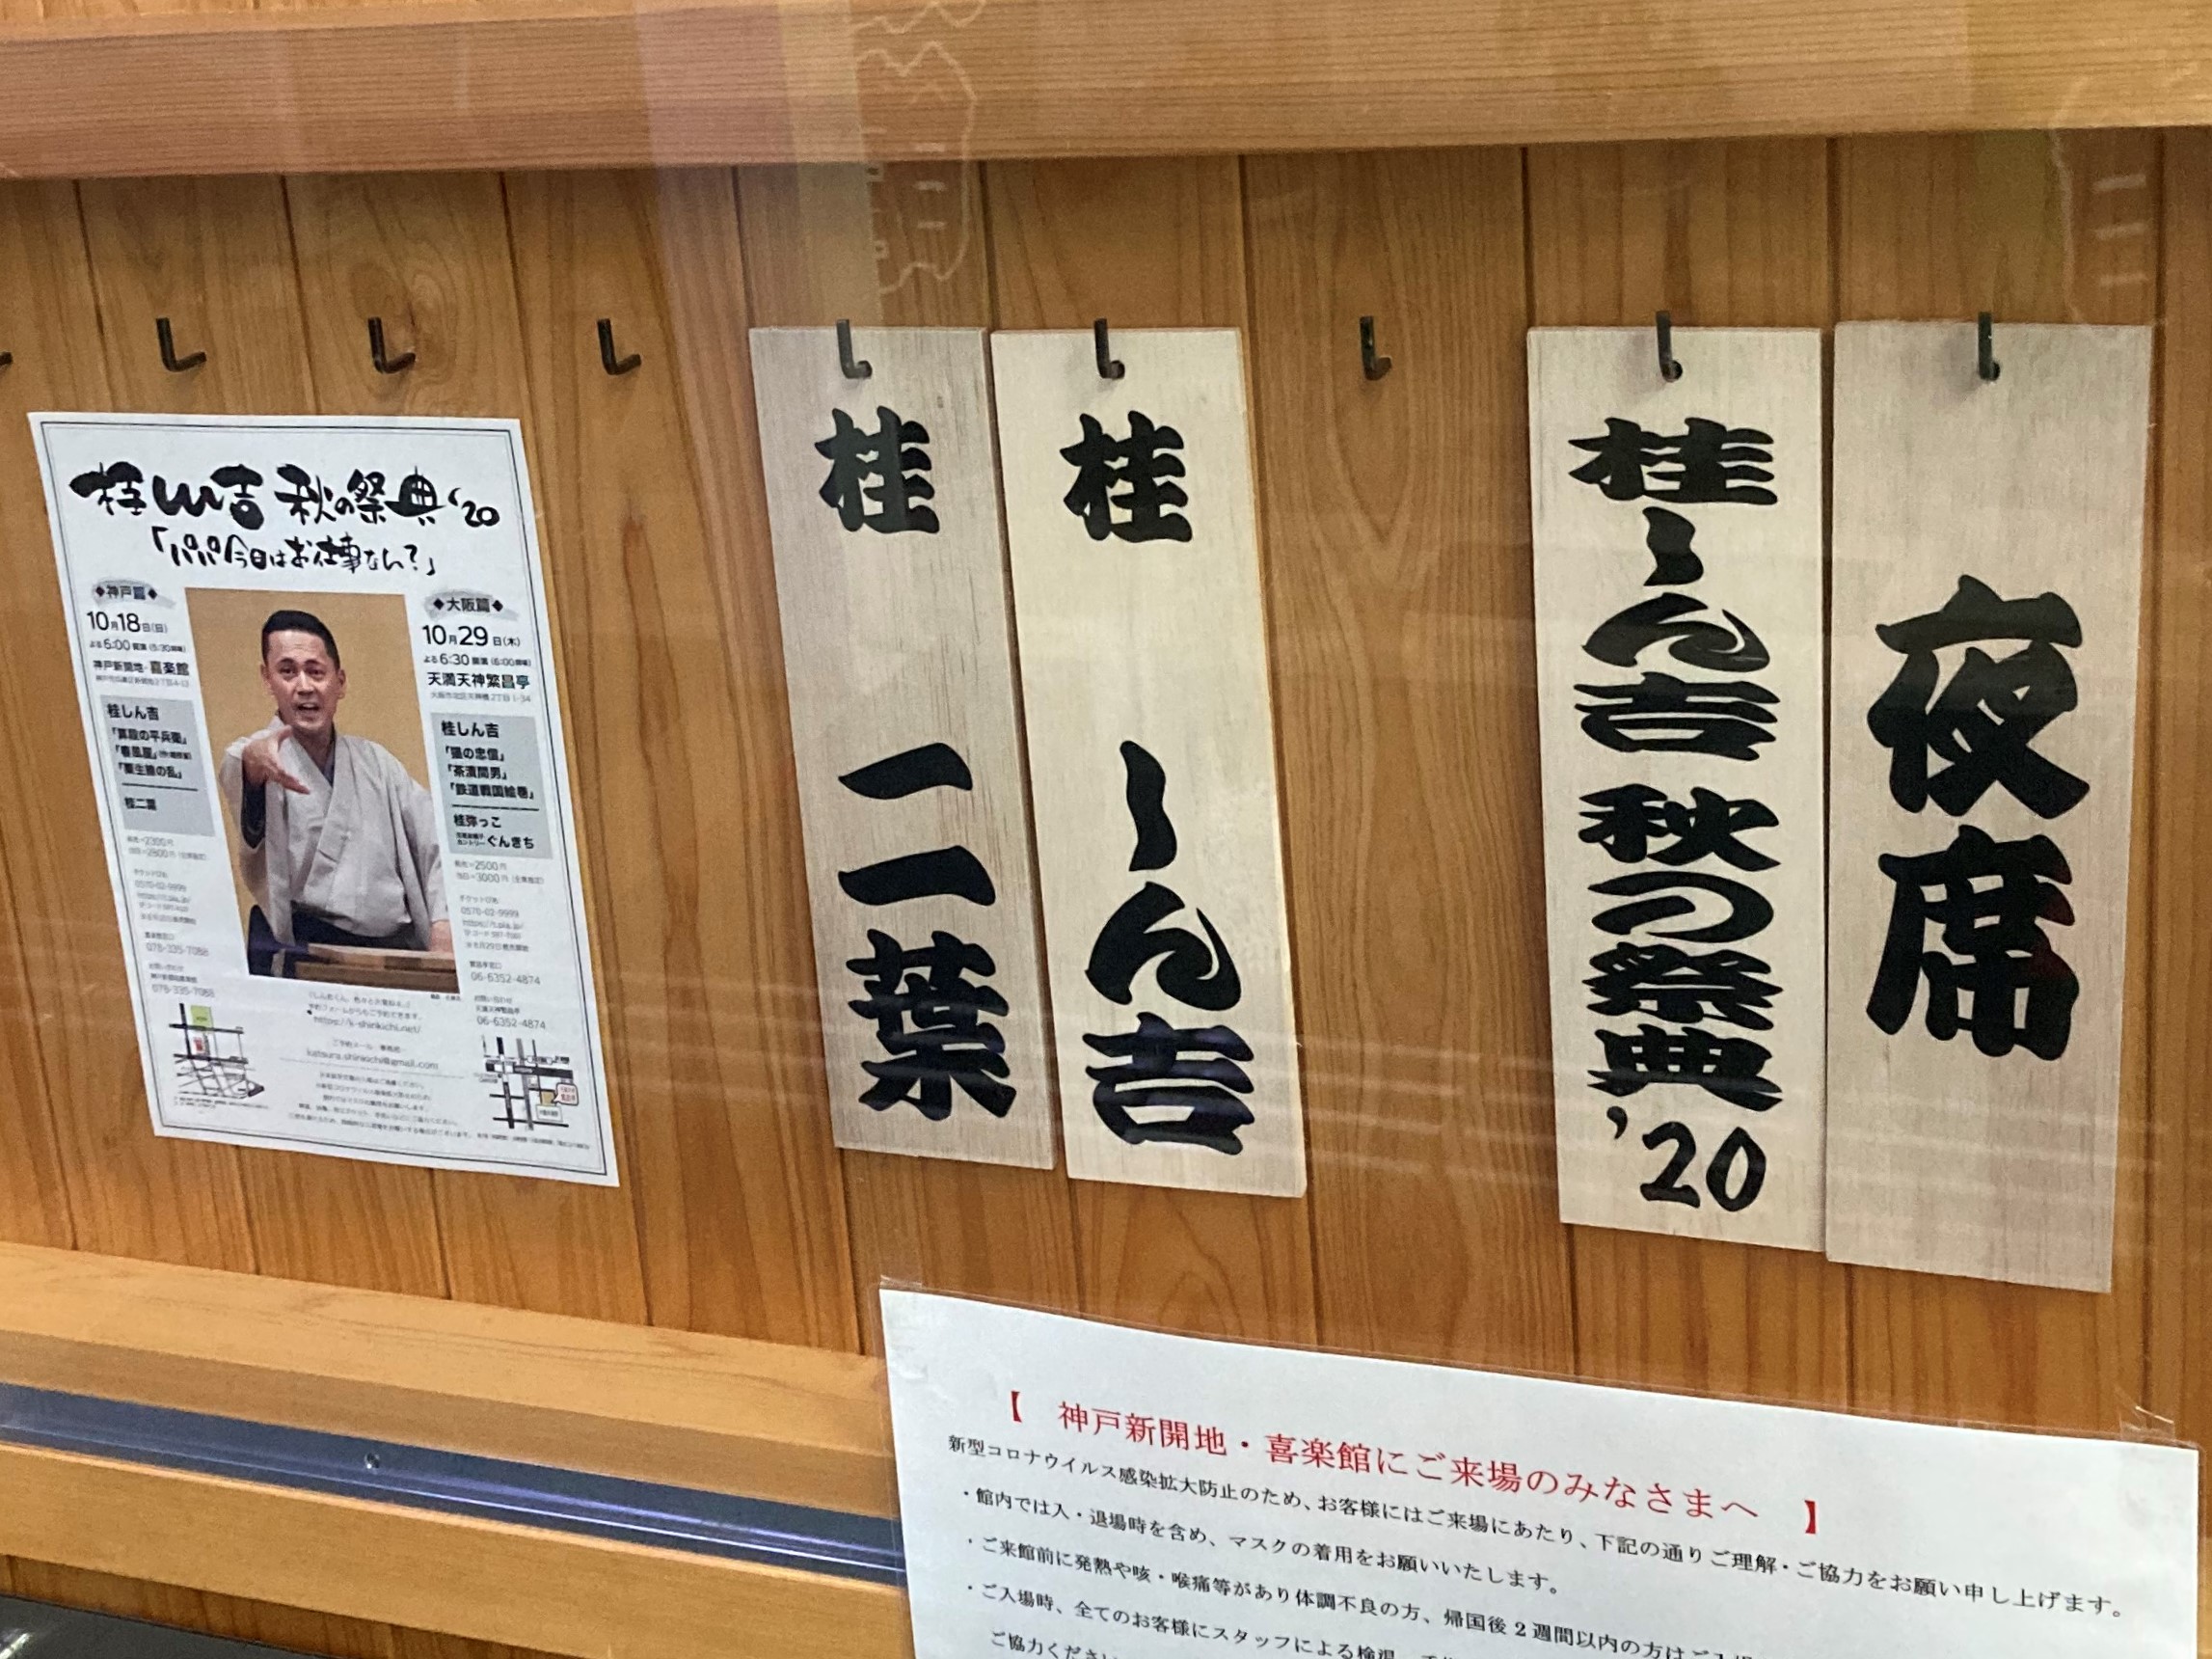 夜席
桂しん吉 秋の祭典 '20
桂 しん吉
桂 二葉
桂しん吉 秋の祭典 '20
「パパ今日はお仕事なん？」
◆神戸篇◆
10月18日(日)
よる6:00開演(5:30開場)
神戸新開地・喜楽館
桂しん吉
「算段の平兵衛」
「粟生線の乱」
桂二葉
078-335-7088
078-335-7088
◆大阪篇◆
10月29日(木)
よる6:30開演(6:00開場)
天満天神繁昌亭
大阪市北区天神橋2丁目1-34
桂しん吉
「猫の忠信」
「茶漬間男」
「鉄道戦国絵巻」
桂弥っこ
ぐんきち
チケットぴあ
0570-02-9999
06-6352-4874
06-6352-4874
https://k-shinkichi.net/
katsura.shinkichi@gmail.com
【 神戸新開地・喜楽館にご来場のみなさまへ 】
新型コロナウイルス感染拡大防止のため、お客様にはご来場にあたり、下記の通りご理解・ご協力をお願い申し上げます。
・館内では入・退場時を含め、マスクの着用をお願いいたします。
・ご来館前に発熱や咳・喉痛等があり体調不良の方、帰国後2週間以内の方はご入場
・ご入場時、全てのお客様にスタッフによる検温
ご協力ください